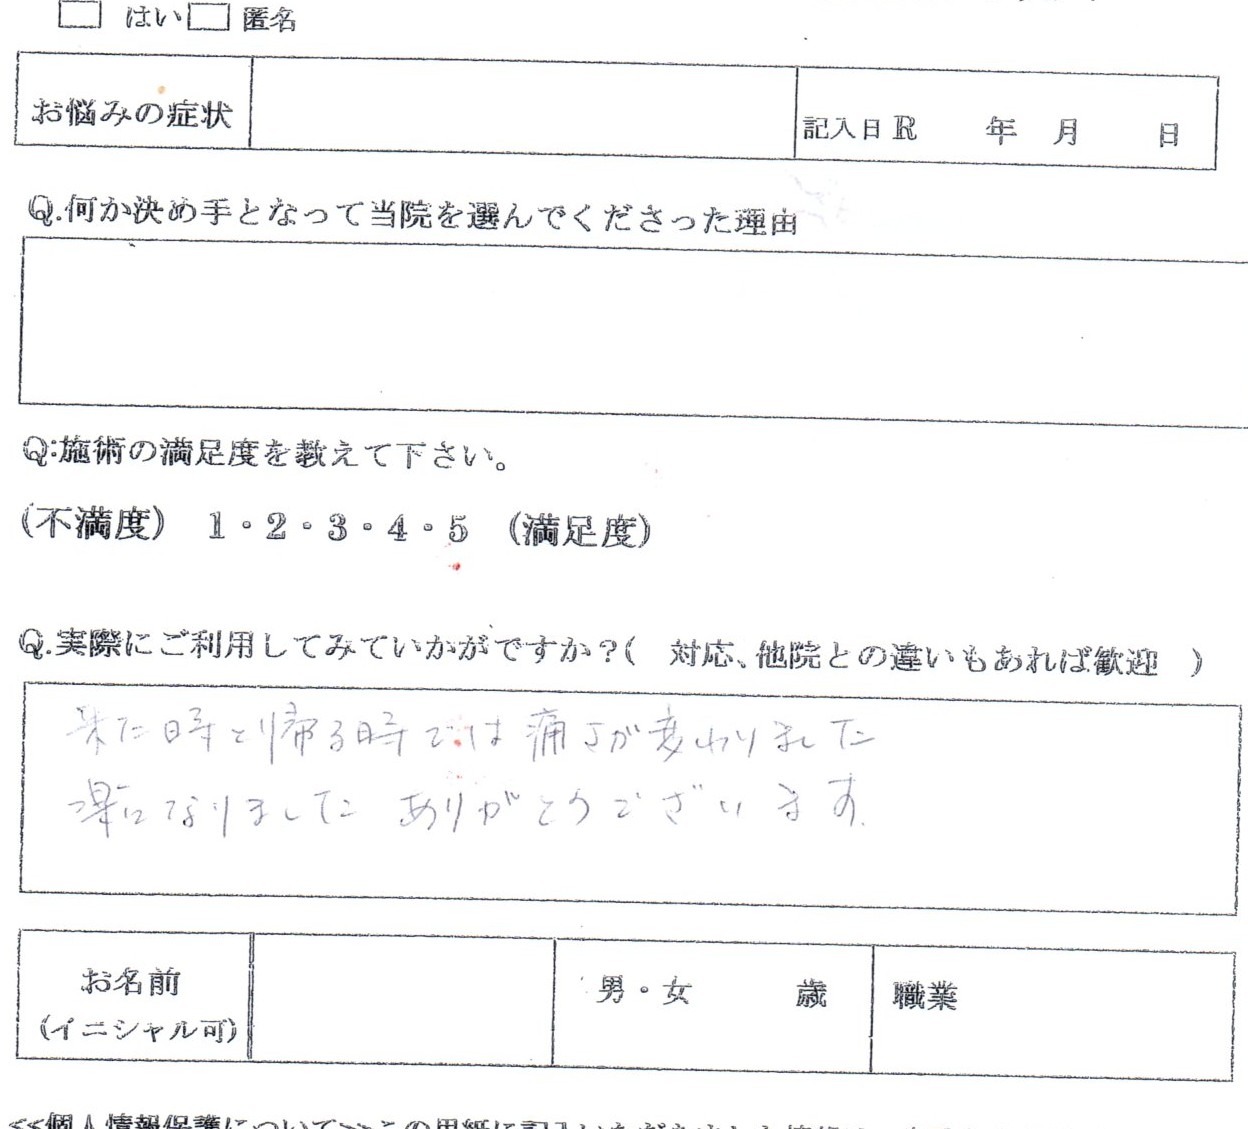 □ はい□ 匿名
お悩みの症状
記入日 R 年 月 日
Q.何か決め手となって当院を選んでくださった理由
Q:施術の満足度を教えて下さい。
(不満度) 1・2・3・4・5 (満足度)
Q.実際にご利用してみていかがですか?( 対応、他院との違いもあれば歓迎 )
来た時と帰る時では痛さが変わりました
楽になりました ありがとうございます.
お名前
(イニシャル可)
男・女 歳
職業
<<個人情報保護について>>この用紙に記入いただきました情報は